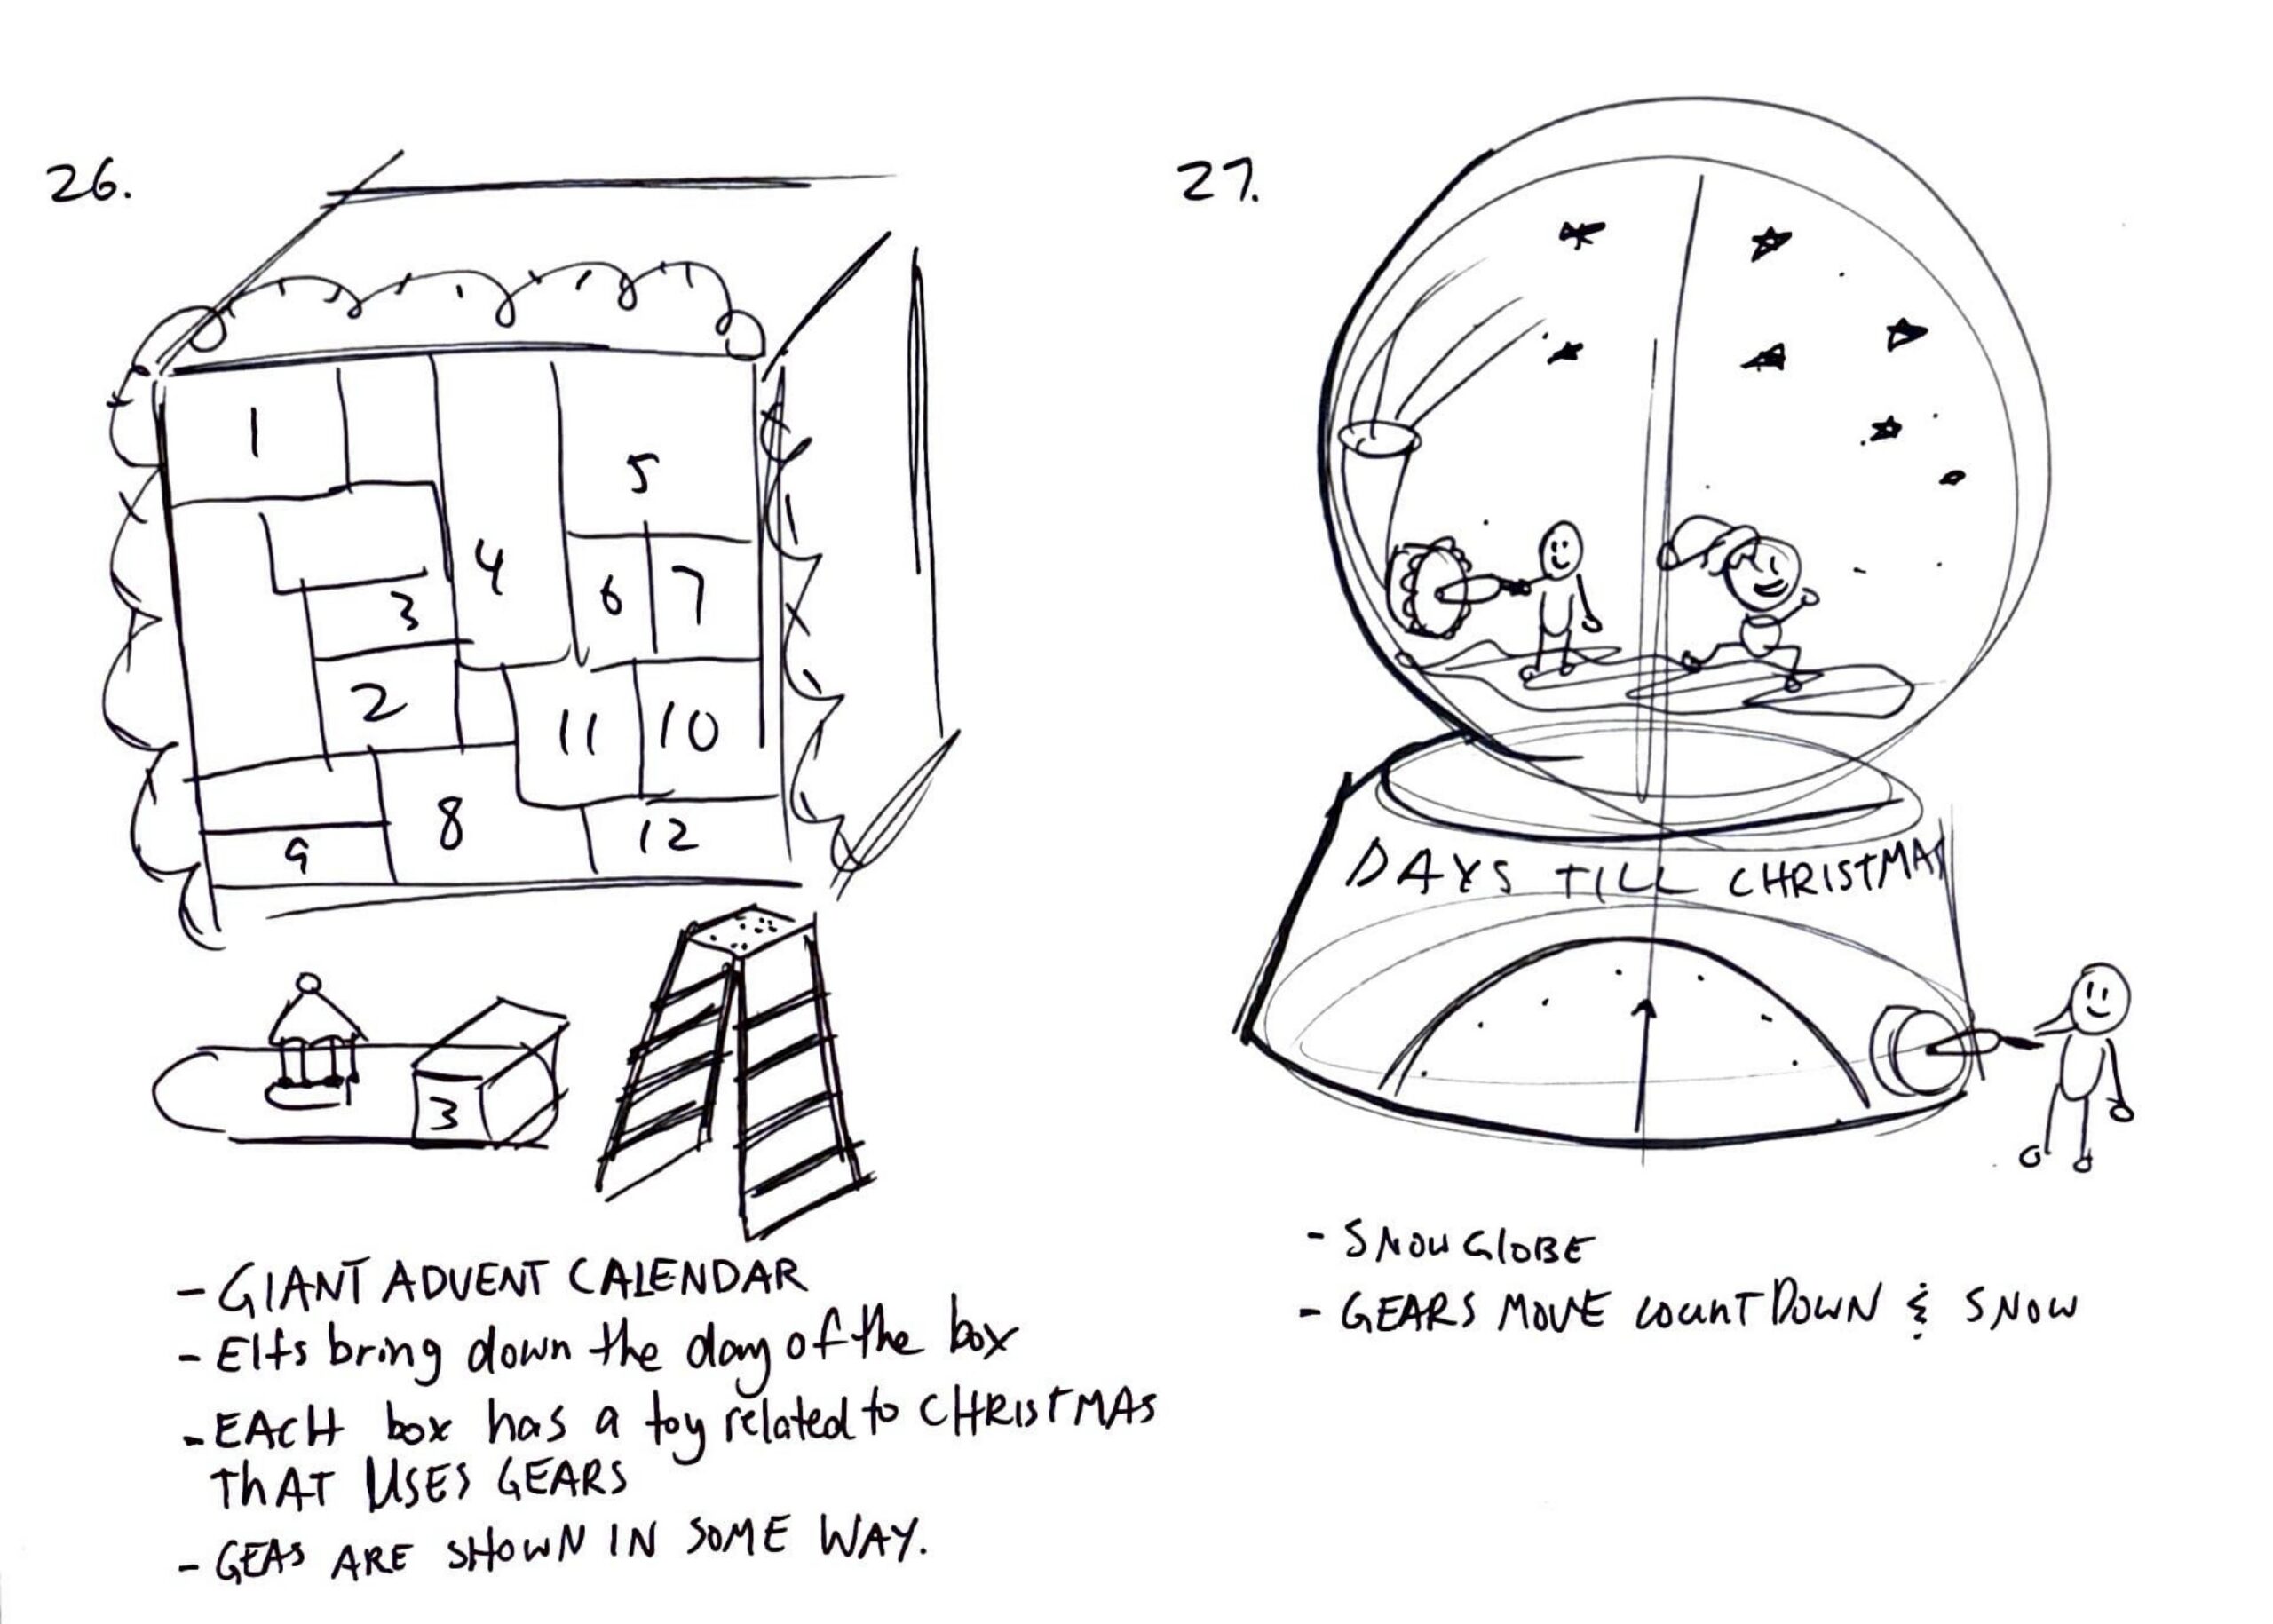 26.
1
5
4
3
6
7
2
11
10
8
9
12
3
- GIANT ADVENT CALENDAR
- Elfs bring down the day of the box
- EACH box has a toy related to CHRISTMAS
THAT USES GEARS
- GEAS ARE SHOWN IN SOME WAY.
27.
DAYS TILL CHRISTMAS
- SNOW GLOBE
- GEARS MOVE COUNTDOWN & SNOW